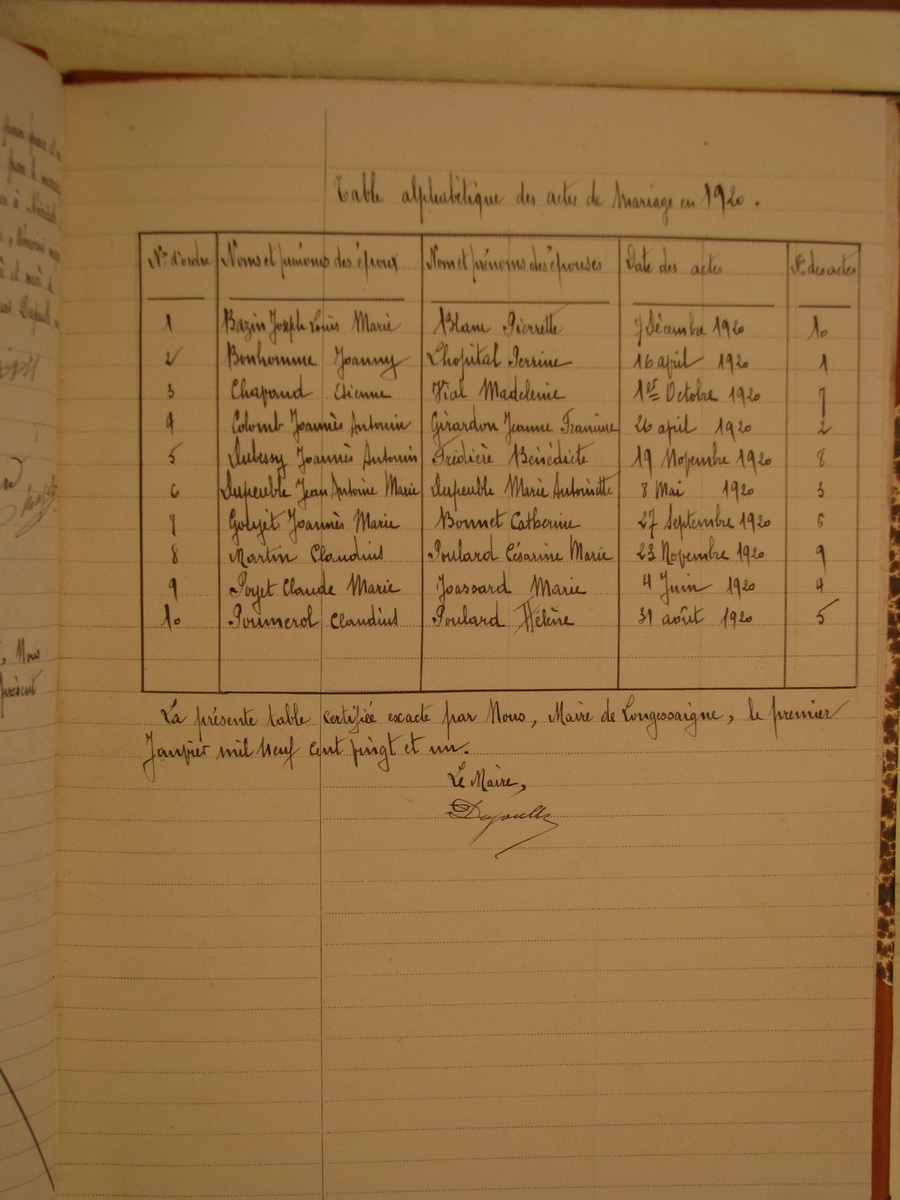 Table alphabétique des actes de Mariage en 1920.
N° d'ordre Noms et prénoms des époux Nom et prénoms des épouses Date des actes N° des actes
1 Bazin Joseph Louis Marie Blanc Pierrette 7 Décembre 1920 10
2 Bonhomme Joanny Lhopital Perrine 16 avril 1920 1
3 Chavand Etienne Vial Madeleine 1er Octobre 1920 7
4 Colomb Joannès Antonin Girardon Jeanne Francine 26 avril 1920 2
5 Dubessy Joannès Antonin Trédière Bénédicte 19 Novembre 1920 8
6 Dupeuble Jean Antoine Marie Dupeuble Marie Antoinette 8 Mai 1920 3
7 Goujet Joannès Marie Bonnet Catherine 27 Septembre 1920 6
8 Martin Claudius Poulard Césarine Marie 23 Novembre 1920 9
9 Poyet Claude Marie Joassard Marie 4 Juin 1920 4
10 Poumerol Claudius Poulard Hélène 31 août 1920 5
La présente table certifiée exacte par Nous, Maire de Longessaigne, le premier
Janvier mil neuf cent vingt et un.
Le Maire,